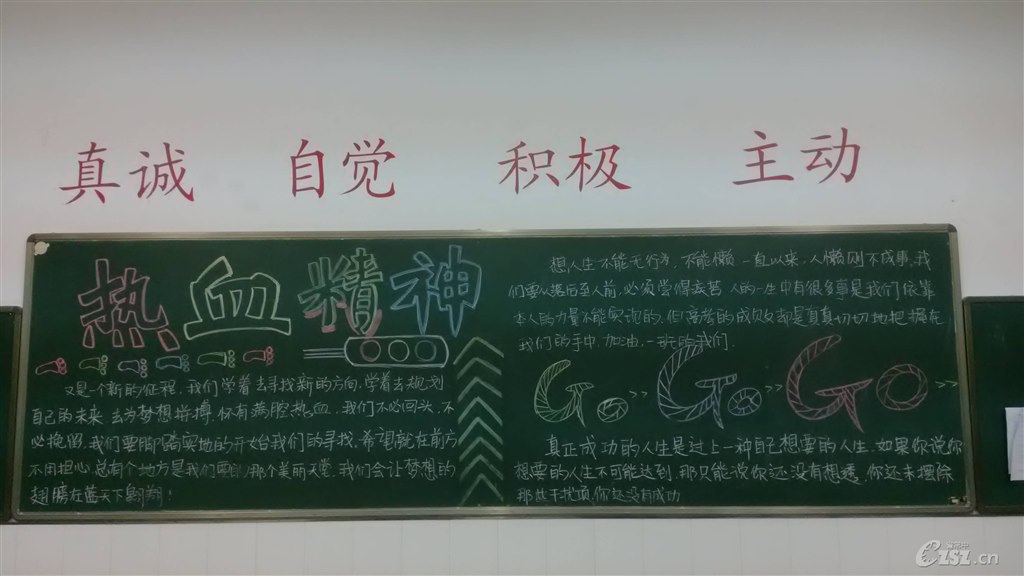 真诚 自觉 积极 主动
热血精神
又是一个新的征程，我们学着去寻找新的方向，学着去规划
自己的未来，去为梦想拼搏，怀有满腔热血，我们不必回头，不
必换留，我们要脚踏实地的开始我们的寻找，希望就在前方
不用担心，总有个地方是我们要的那个美丽天堂，我们会让梦想的
翅膀在蓝天下翱翔！
想人生不能无行为，不能懒，一直以来，人懒则不成事，我
们要以落后至人前，必须尝得去苦，人的一生中有很多事是我们依靠
本人的力量不能实现的，但高考的成败却是真真切切地把握在
我们的手中，加油，一班的我们.
Go >> Go >> Go >>
真正成功的人生是过上一种自己想要的人生，如果你说你
想要的人生不可能达到，那只能说你还没有想透，你还未摆除
那些干扰项，你还没有成功
CZSZ.cn